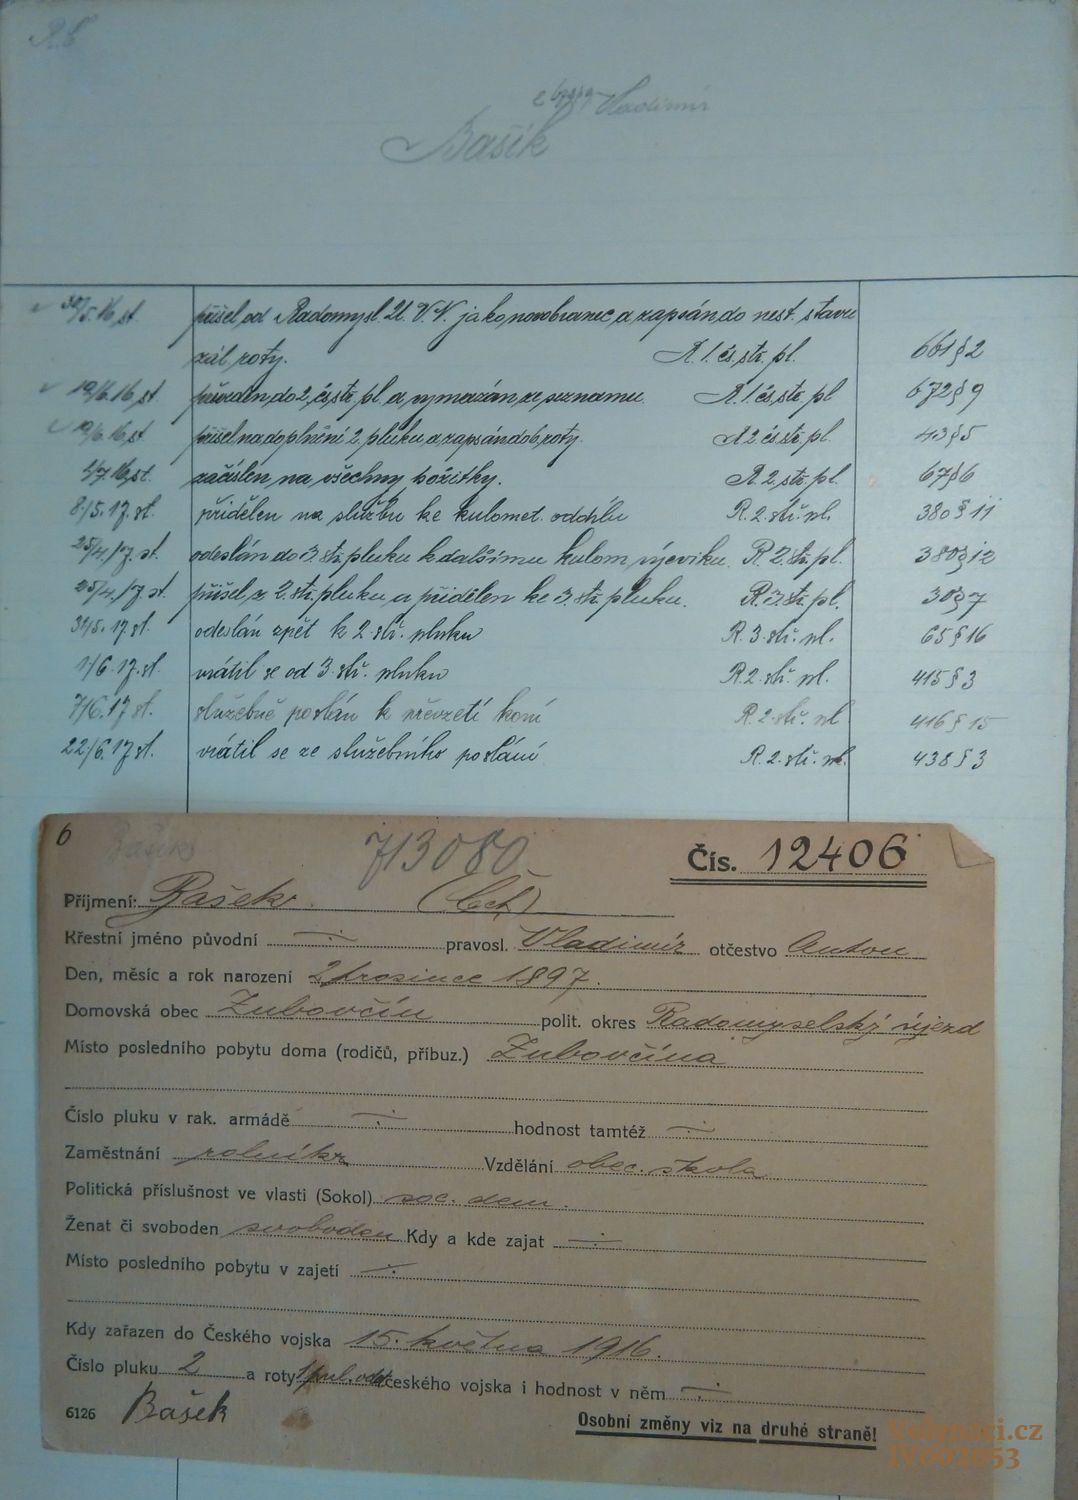 Vladimír
Bašík
30/5.16.st. přišel od Radomysl. U. V. N. jako novobranec a zapsán do nest. stavu
zál. roty. R. 1. čs. stř. pl. 661 § 2
19/6.16.st. převeden do 2. čs. stř. pl. a vymazán ze seznamu R. 1. čs. stř. pl 672 § 9
19/6.16.st přišel na doplnění 2. pluku a zapsán do 6. roty. R. 2. čs. stř. pl. 43 § 5
1/7.16.st. začíslen na všechny požitky. R. 2. stř. pl. 67 § 6
8/5.17.st. přidělen na službu ke kulomet. oddílu R. 2. stř. pl. 380 § 11
25/4.17.st. odeslán do 3. stř. pluku k dalšímu kulom. výcviku. R. 2. stř. pl. 380 § 12
25/4.17.st. přišel z 2. stř. pluku a přidělen ke 3. stř. pluku. R. 3. stř. pl. 30 § 7
31/5.17.st. odeslán zpět k 2. stř. pluku R. 3. stř. pl. 65 § 16
1/6.17.st. vrátil se od 3. stř. pluku R. 2. stř. pl. 415 § 3
7/6.17.st. služebně poslán k převzetí koní R. 2. stř. pl 416 § 15
22/6.17.st. vrátil se ze služebního poslání R. 2. stř. pl. 438 § 3
6 Bašík 713080 Čís. 12406
Příjmení: Bašek. (Čch)
Křestní jméno původní –:– pravosl. Vladimír otčestvo Anton
Den, měsíc a rok narození 2 prosince 1897.
Domovská obec Zubovčín polit. okres Radomyselský újezd
Místo posledního pobytu doma (rodičů, příbuz.) Zubovčina
Číslo pluku v rak. armádě –:– hodnost tamtéž –:–
Zaměstnání rolník Vzdělání obec. škola
Politická příslušnost ve vlasti (Sokol) soc. dem.
Ženat či svoboden svoboden Kdy a kde zajat –:–
Místo posledního pobytu v zajetí –:–
Kdy zařazen do Českého vojska 15. května 1916.
Číslo pluku 2 a roty 1 kul. odd. českého vojska i hodnost v něm –:–
6126 Bašek Osobní změny viz na druhé straně!
Volynaci.cz
IV002053